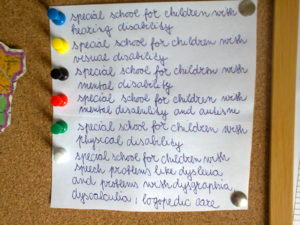 special school for children with
hearing disability
special school for children with
visual disability
special school for children with
mental disability
special school for children with
mental disability and autism
special school for children with
physical disability
special school for children with
speech problems like dyslexia
and problems with dysgraphia
dyscalculia, logopedic care